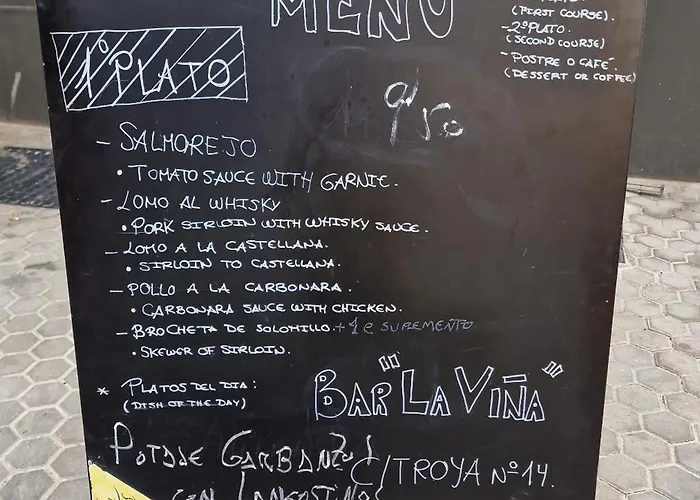 MENU
(FIRST COURSE).
-2ºPLATO.
(SECOND COURSE)
-POSTRE O CAFÉ.
(DESSERT OR COFFEE)
1º PLATO
9'50
- SALMOREJO
• TOMATO SAUCE WITH GARNIC.
- LOMO AL WHISKY
• PORK SIRLOIN WITH WHISKY SAUCE.
- LOMO A LA CASTELLANA.
• SIRLOIN TO CASTELLANA.
- POLLO A LA CARBONARA.
• CARBONARA SAUCE WITH CHICKEN.
- BROCHETA DE SOLOMILLO. +1€ SUPLEMENTO
• SKEWER OF SIRLOIN.
* PLATOS DEL DIA:
(DISH OF THE DAY)
BAR "LA VIÑA"
POTAJE GARBANZOS
CON LANGOSTINOS
C/TROYA Nº 14.